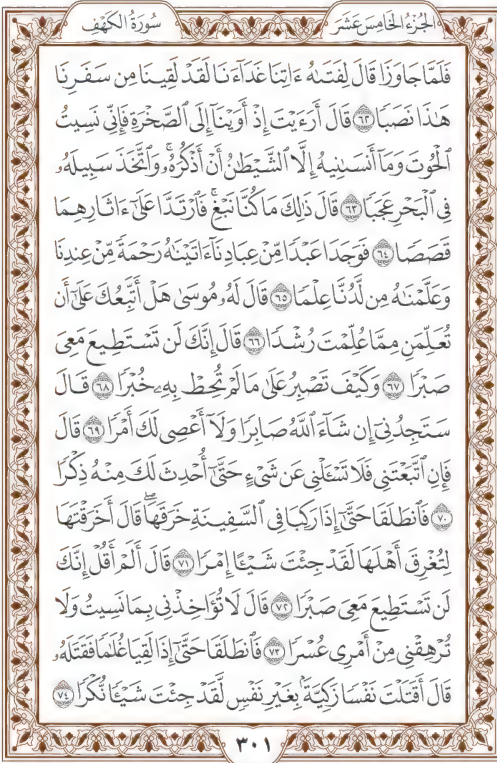 الجُزءُ الخَامِسَ عَشَرَ سُورَةُ الكَهْفِ
فَلَمَّا جَاوَزَا قَالَ لِفَتَىٰهُ ءَاتِنَا غَدَآءَنَا لَقَدْ لَقِينَا مِن سَفَرِنَا
هَٰذَا نَصَبًا ٦٢ قَالَ أَرَءَيْتَ إِذْ أَوَيْنَآ إِلَى ٱلصَّخْرَةِ فَإِنِّي نَسِيتُ
ٱلْحُوتَ وَمَآ أَنسَىٰنِيهُ إِلَّا ٱلشَّيْطَٰنُ أَنْ أَذْكُرَهُۥۚ وَٱتَّخَذَ سَبِيلَهُۥ
فِي ٱلْبَحْرِ عَجَبًا ٦٣ قَالَ ذَٰلِكَ مَا كُنَّا نَبْغِۚ فَٱرْتَدَّا عَلَىٰٓ ءَاثَارِهِمَا
قَصَصًا ٦٤ فَوَجَدَا عَبْدًا مِّنْ عِبَادِنَآ ءَاتَيْنَٰهُ رَحْمَةً مِّنْ عِندِنَا
وَعَلَّمْنَٰهُ مِن لَّدُنَّا عِلْمًا ٦٥ قَالَ لَهُۥ مُوسَىٰ هَلْ أَتَّبِعُكَ عَلَىٰٓ أَن
تُعَلِّمَنِ مِمَّا عُلِّمْتَ رُشْدًا ٦٦ قَالَ إِنَّكَ لَن تَسْتَطِيعَ مَعِيَ
صَبْرًا ٦٧ وَكَيْفَ تَصْبِرُ عَلَىٰ مَا لَمْ تُحِطْ بِهِۦ خُبْرًا ٦٨ قَالَ
سَتَجِدُنِيٓ إِن شَآءَ ٱللَّهُ صَابِرًا وَلَآ أَعْصِي لَكَ أَمْرًا ٦٩ قَالَ
فَإِنِ ٱتَّبَعْتَنِي فَلَا تَسْـَٔلْنِي عَن شَيْءٍ حَتَّىٰٓ أُحْدِثَ لَكَ مِنْهُ ذِكْرًا
٧٠ فَٱنطَلَقَا حَتَّىٰٓ إِذَا رَكِبَا فِي ٱلسَّفِينَةِ خَرَقَهَاۖ قَالَ أَخَرَقْتَهَا
لِتُغْرِقَ أَهْلَهَا لَقَدْ جِئْتَ شَيْـًٔا إِمْرًا ٧١ قَالَ أَلَمْ أَقُلْ إِنَّكَ
لَن تَسْتَطِيعَ مَعِيَ صَبْرًا ٧٢ قَالَ لَا تُؤَاخِذْنِي بِمَا نَسِيتُ وَلَا
تُرْهِقْنِي مِنْ أَمْرِي عُسْرًا ٧٣ فَٱنطَلَقَا حَتَّىٰٓ إِذَا لَقِيَا غُلَٰمًا فَقَتَلَهُۥ
قَالَ أَقَتَلْتَ نَفْسًا زَكِيَّةًۢ بِغَيْرِ نَفْسٍ لَّقَدْ جِئْتَ شَيْـًٔا نُّكْرًا ٧٤
٣٠١